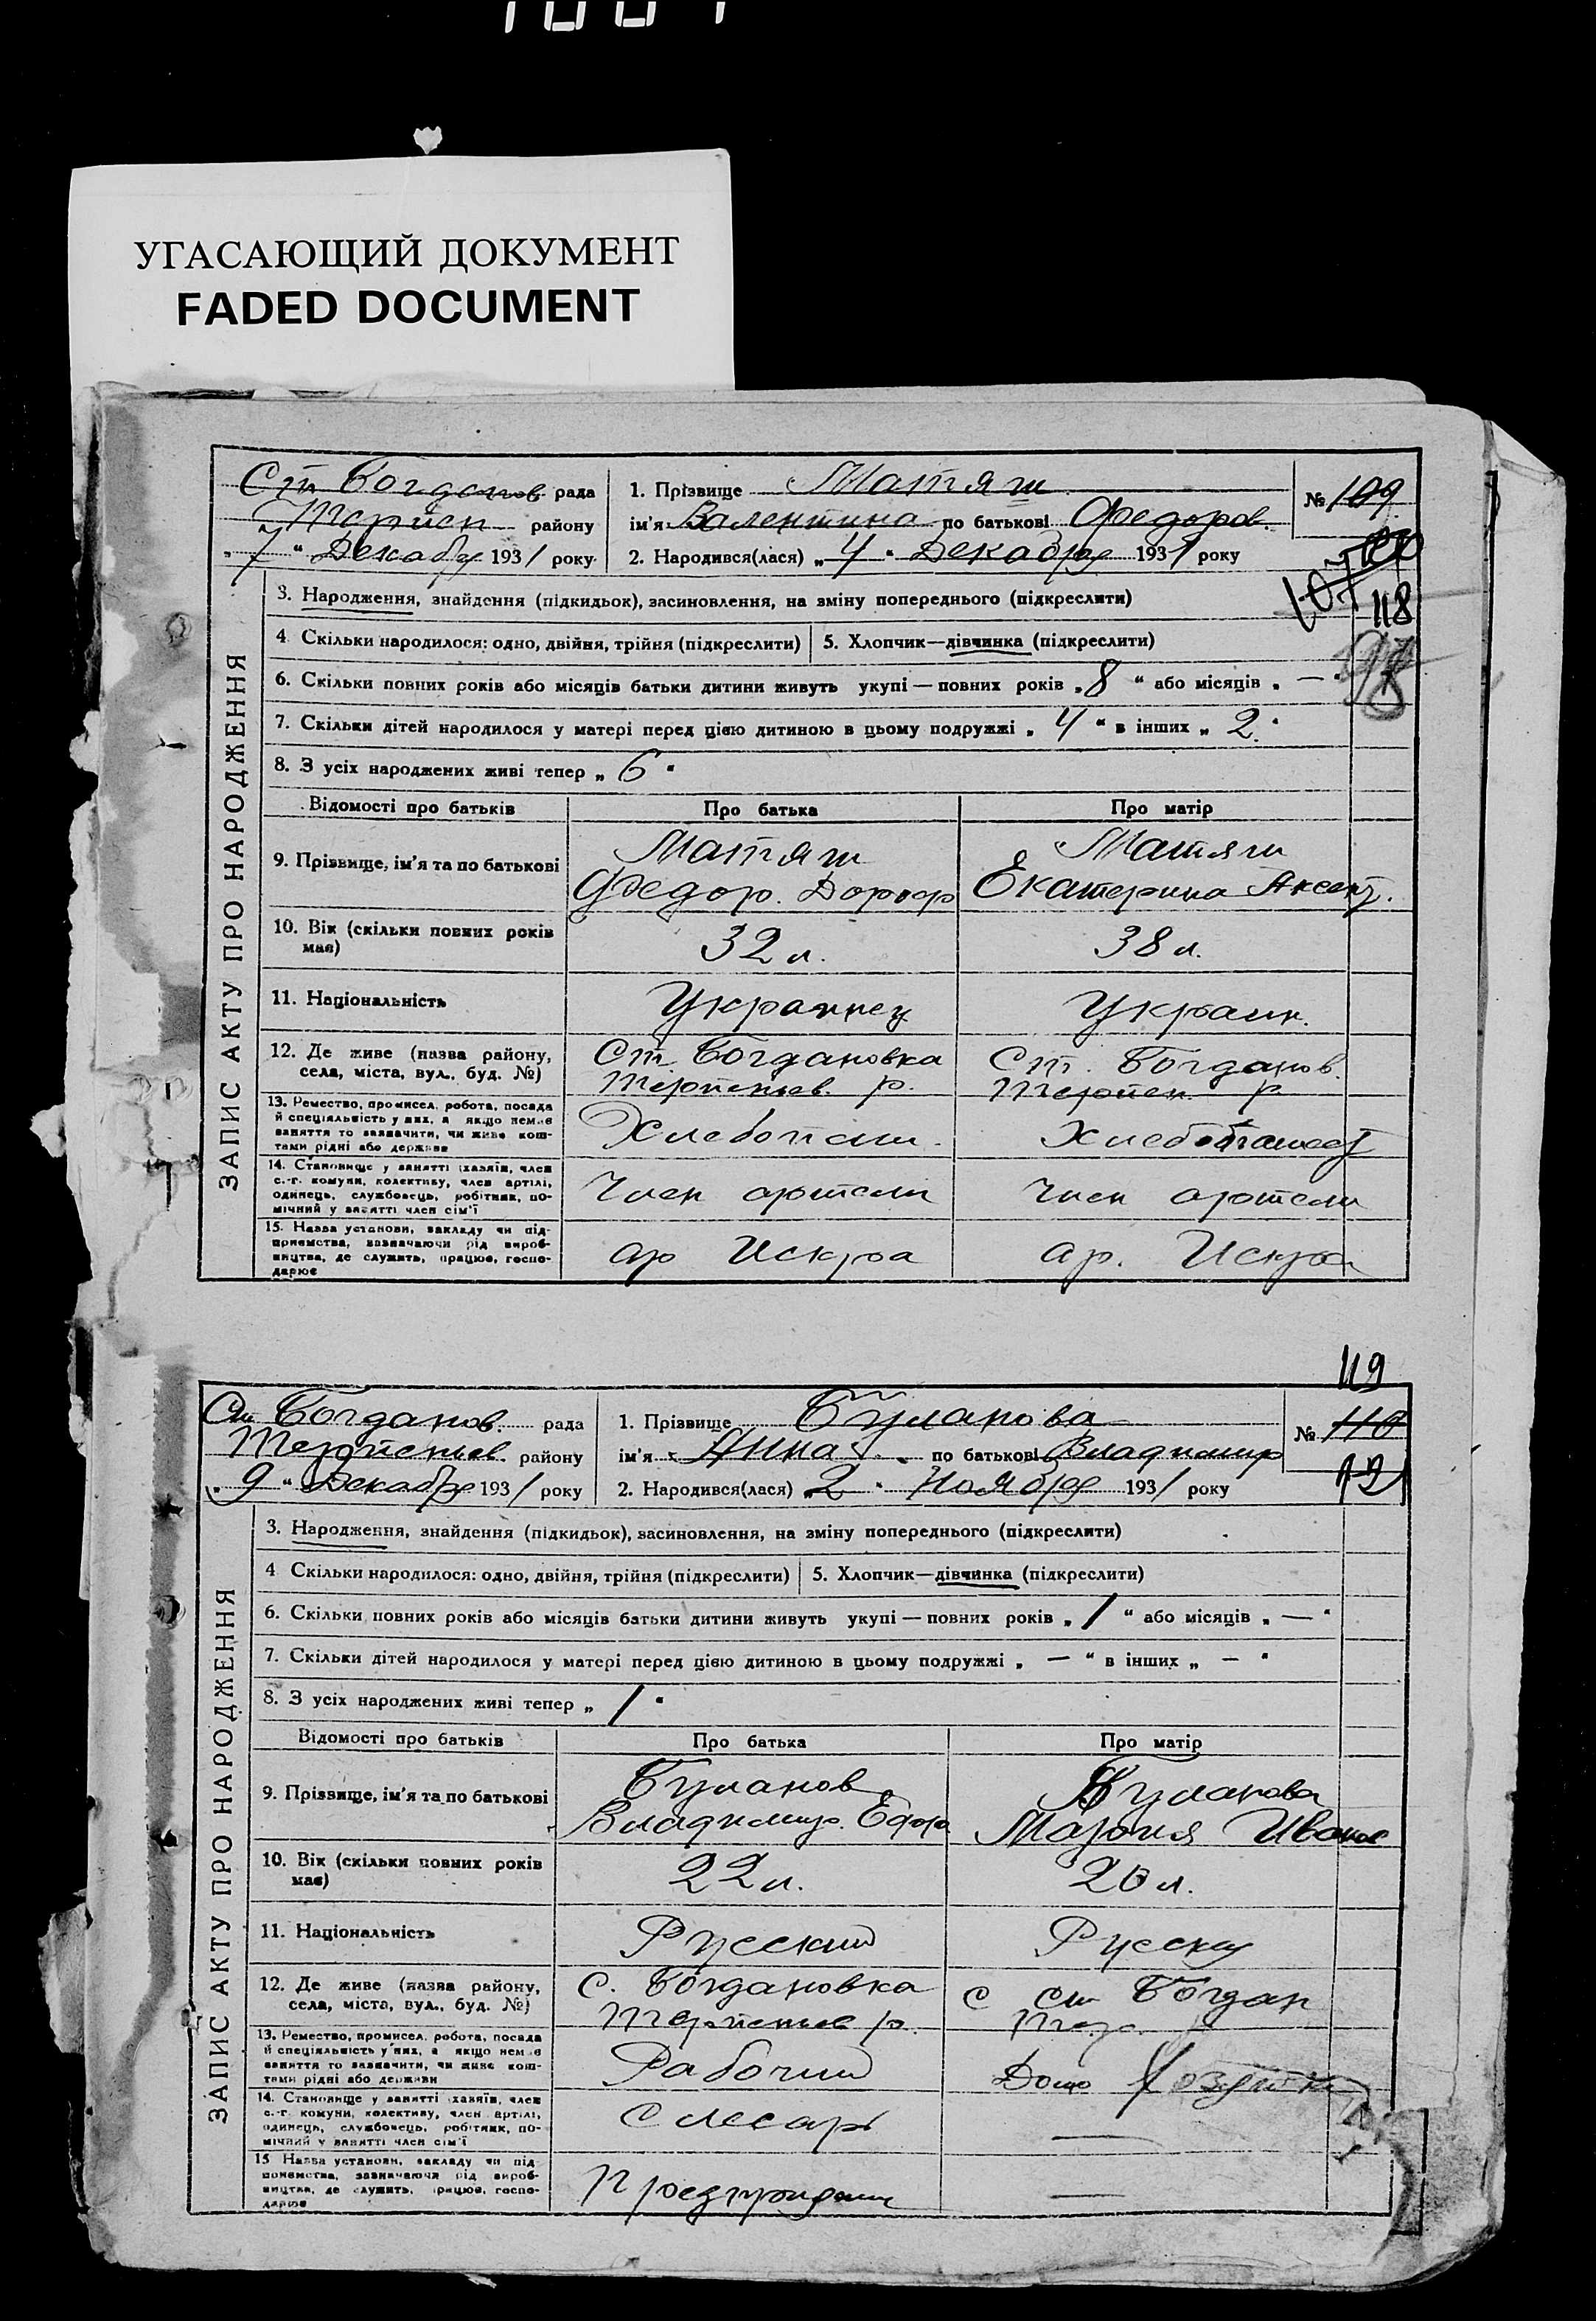 УГАСАЮЩИЙ ДОКУМЕНТ
FADED DOCUMENT
Ст Богданов рада
Терпен району
„ 7 “ Декабря 1931 року
1. Прізвище Матяш
ім'я Валентина по батькові Федоров.
2. Народився(лася) „ 4 “ Декабря 1931 року
№ 109
107
118
ЗАПИС АКТУ ПРО НАРОДЖЕННЯ
3. Народження, знайдення (підкидьок), засиновлення, на зміну попереднього (підкреслити)
4. Скільки народилося: одно, двійня, трійня (підкреслити)
5. Хлопчик—дівчинка (підкреслити)
6. Скільки повних років або місяців батьки дитини живуть укупі — повних років „ 8 “ або місяців „ — “
7. Скільки дітей народилося у матері перед цією дитиною в цьому подружжі „ 4 “ в інших „ 2 “
8. З усіх народжених живі тепер „ 6 “
Відомості про батьків Про батька Про матір
9. Прізвище, ім'я та по батькові
Матяш
Федор. Дороф
Матяш
Екатерина Аксент.
10. Вік (скільки повних років має)
32 л.
38 л.
11. Національність
Украинец
Украин.
12. Де живе (назва району,
села, міста, вул., буд. №)
Ст Богдановка
Терпеньев. р.
Ст. Богданов.
Терпен. р.
13. Ремество, промисел, робота, посада
й спеціяльність у них, а якщо немає
заняття то зазначити, чи живе кош-
тами рідні або держави
Хлебопаш.
14. Становище у занятті (хазяїн, член
с.-г. комуни, колективу, член артілі,
одинець, службовець, робітник, по-
мічний у занятті член сім'ї
Член артели
Член артели
15. Назва установи, закладу чи під-
приємства, зазначаючи рід вироб-
ництва, де служить, працює, госпо-
дарює
ар Искра
ар. Искра
119
Ст Богданов. рада
Терпеньев. району
„ 9 “ Декабря 1931 року
1. Прізвище Буланова
ім'я Анна по батькові Владимир
2. Народився(лася) „ 2 “ Ноября 1931 року
№ 110
ЗАПИС АКТУ ПРО НАРОДЖЕННЯ
3. Народження, знайдення (підкидьок), засиновлення, на зміну попереднього (підкреслити)
4 Скільки народилося: одно, двійня, трійня (підкреслити)
5. Хлопчик—дівчинка (підкреслити)
6. Скільки повних років або місяців батьки дитини живуть укупі — повних років „ 1 “ або місяців „ — “
7. Скільки дітей народилося у матері перед цією дитиною в цьому подружжі „ — “ в інших „ — “
8. З усіх народжених живі тепер „ 1 “
Відомості про батьків Про батька Про матір
9. Прізвище, ім'я та по батькові
Буланов
Владимир. Ефра
Буланова
Мария Иванов
10. Вік (скільки повних років має)
22 л.
20 л.
11. Національність
Русский
Русская
12. Де живе (назва району,
села, міста, вул., буд. №)
С. Богдановка
Терпеньев р.
С Ст Богдан
Тер.
13. Ремество, промисел, робота, посада
й спеціяльність у них, а якщо немає
заняття то зазначити, чи живе кош-
тами рідні або держави
Рабочий
Дом
14. Становище у занятті (хазяїн, член
с.-г. комуни, колективу, член артілі,
одинець, службовець, робітник, по-
мічний у занятті член сім'ї
Слесарь
—
15 Назва установи, закладу чи під
приємства, зазначаючи рід вироб-
ництва, де служить, працює, госпо-
дарює
—